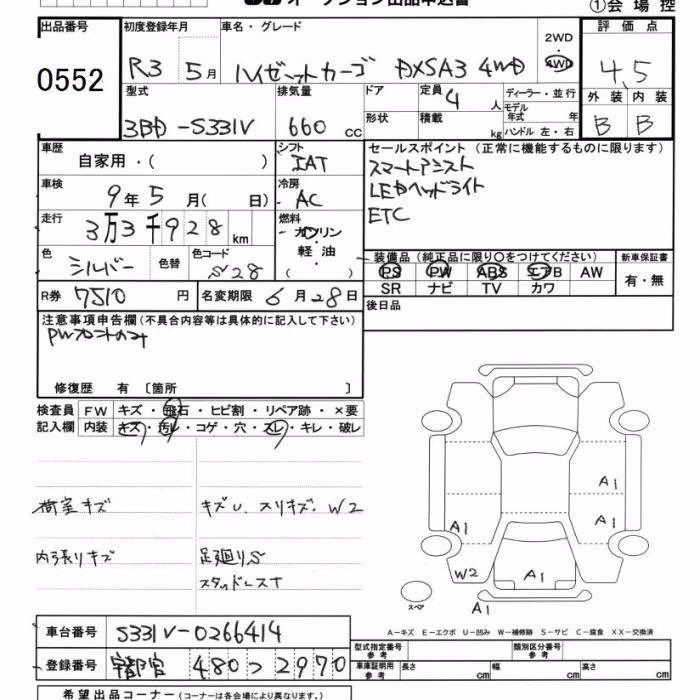 オークション出品申込書
①会場控
出品番号 0552
初度登録年月 R3 5月
車名・グレード ハイゼットカーゴ DXSA3 4WD
2WD
4WD
評価点 4.5
外装 内装
B B
型式 3BD-S331V
排気量 660 cc
ドア
形状
定員 4人
積載 kg
ディーラー・並行
モデル年式 年
ハンドル 左・右
車歴 自家用・( )
シフト IAT
セールスポイント(正常に機能するものに限ります)
スマートアシスト
LEDヘッドライト
ETC
車検 9年5月( 日)
冷房 AC
走行 3万3千928km
燃料 ガソリン・軽油
( )
色 シルバー 色替 色コード S28
装備品(純正品に限り○をつけてください)
PS PW ABS エアB AW
SR ナビ TV カワ
新車保証書
有・無
R券 7510円 名変期限 6月28日
後日品
注意事項申告欄(不具合内容等は具体的に記入して下さい)
PWフロントのみ
修復歴 有〔箇所 〕
検査員記入欄
FW キズ・飛石・ヒビ割・リペア跡・×要
内装 キズ・汚レ・コゲ・穴・スレ・キレ・破レ
荷室キズ キズU、スリキズ、W2
内張りキズ 足廻りS
スタッドレスT
A1
A1
A1
W2
A1
A1
スペア
A-キズ E-エクボ U-凹み W-補修跡 S-サビ C-腐食 XX-交換済
車台番号 S331V-0266414
登録番号 宇都宮 480 つ 2970
型式指定番号 参考
類別区分番号 参考
車庫証明用 参考 長さ cm 幅 cm 高さ cm
希望出品コーナー(コーナーは各会場により異なります。)